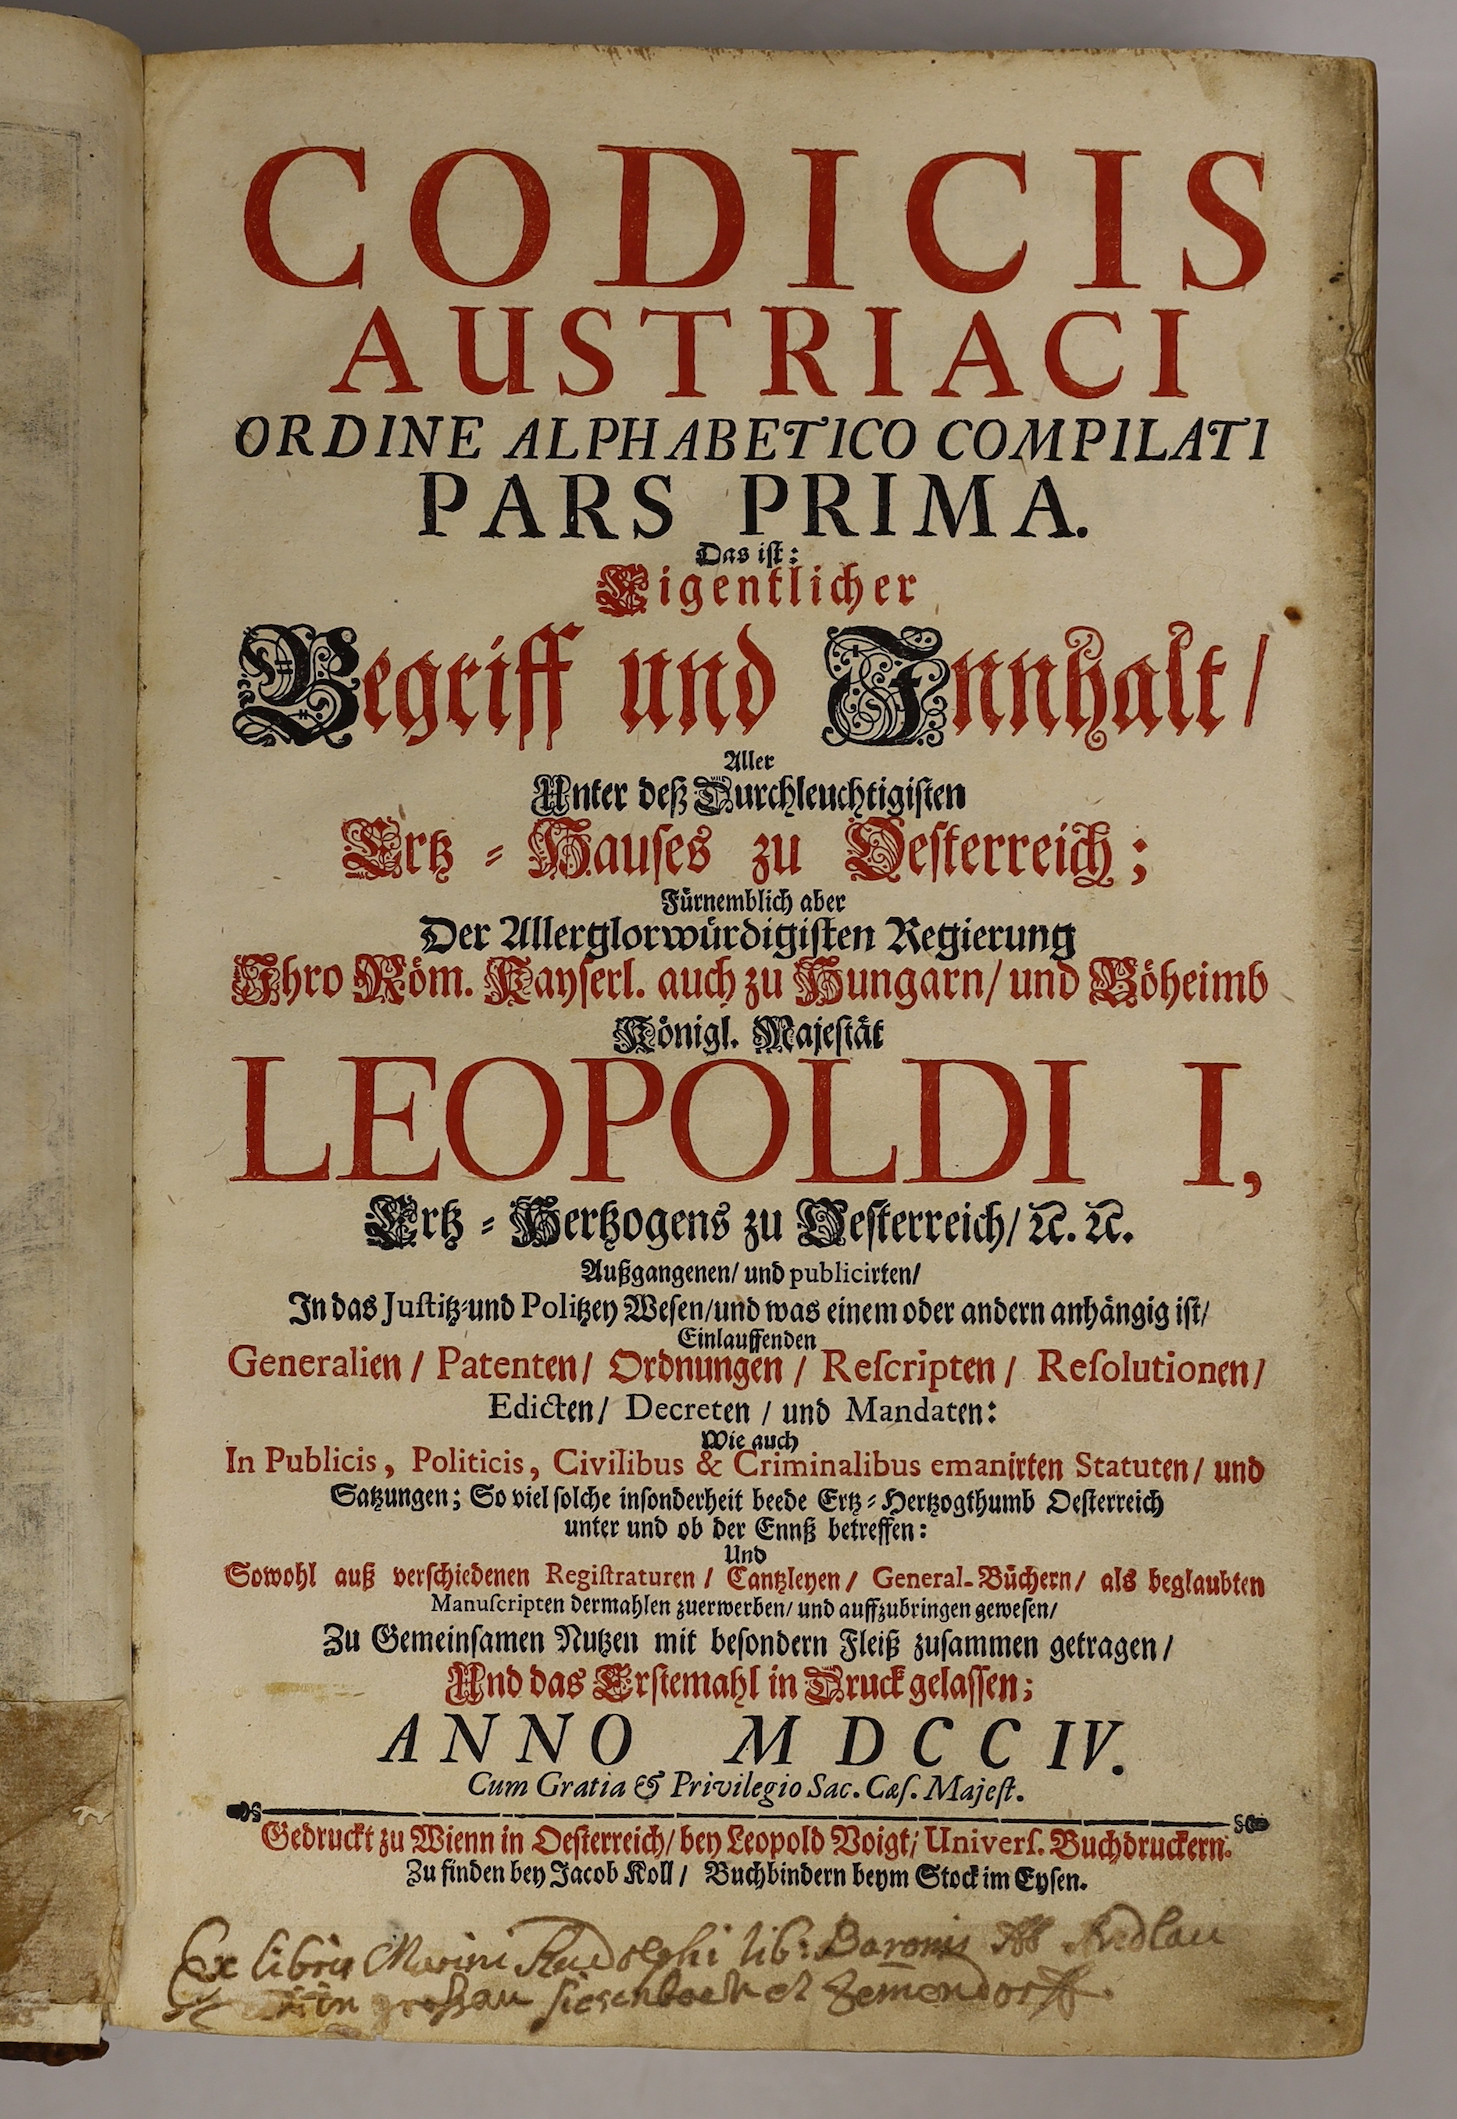 CODICIS
AUSTRIACI
ORDINE ALPHABETICO COMPILATI
PARS PRIMA.
Das iſt:
Eigentlicher
Begriff und Innhalt/
Aller
Unter deß Durchleuchtigiſten
Ertz-Hauſes zu Oeſterreich;
Fürnemblich aber
Der Allerglorwürdigiſten Regierung
Ihro Röm. Kayſerl. auch zu Hungarn/ und Böheimb
Königl. Majeſtät
LEOPOLDI I,
Ertz-Hertzogens zu Oeſterreich/ ꝛc. ꝛc.
Außgangenen/ und publicirten/
In das Juſtitz-und Politzey Weſen/und was einem oder andern anhängig iſt/
Einlauffenden
Generalien / Patenten/ Ordnungen / Reſcripten / Reſolutionen/
Edicten/ Decreten / und Mandaten:
Wie auch
In Publicis, Politicis, Civilibus & Criminalibus emanirten Statuten/ und
Satzungen; So viel ſolche inſonderheit beede Ertz-Hertzogthumb Oeſterreich
unter und ob der Ennß betreffen:
Und
Sowohl auß verſchiedenen Regiſtraturen / Cantzleyen/ General-Büchern/ als beglaubten
Manuſcripten dermahlen zuerwerben/ und auffzubringen geweſen/
Zu Gemeinſamen Nutzen mit beſondern Fleiß zuſammen getragen/
Und das Erſtemahl in Druck gelaſſen;
ANNO MDCCIV.
Cum Gratia & Privilegio Sac. Cæſ. Majeſt.
Gedruckt zu Wienn in Oeſterreich/ bey Leopold Voigt/ Univerſ. Buchdruckern.
Zu finden bey Jacob Koll/ Buchbindern beym Stock im Eyſen.
Ex libris Marini Rudolphi lib: Baronis Ab Andlau
in groſsau et